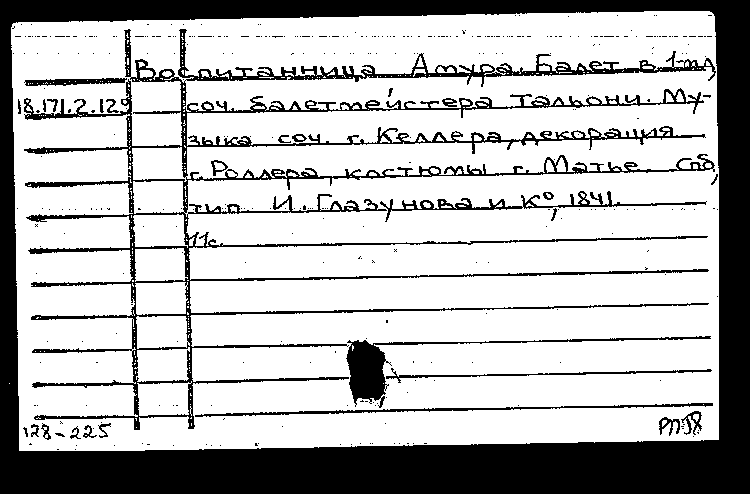 Воспитанница Амура. Балет в 1-м д,
18.171.2.129 соч. балетмейстера Тальони. Му-
зыка соч. г. Келлера, декорация
г. Роллера, костюмы г. Матье. Спб,
тип И. Глазунова и К°, 1841.
11с.
128-225